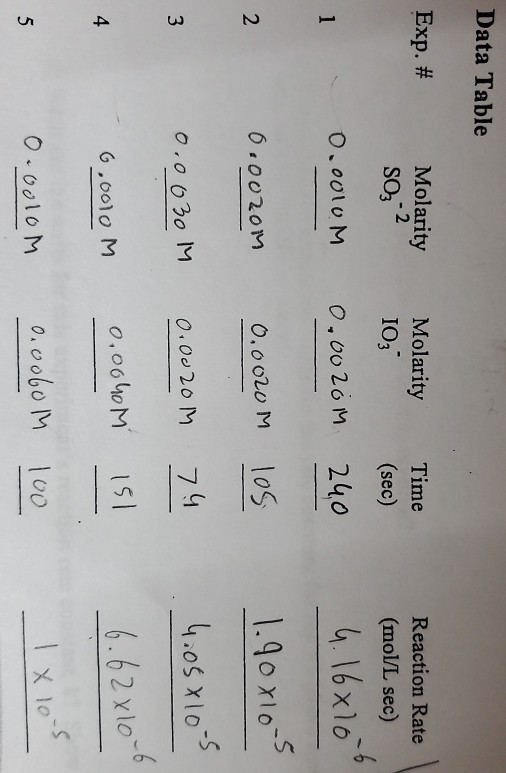 Data Table
Exp. # Molarity SO₃⁻² Molarity IO₃⁻ Time (sec) Reaction Rate (mol/L sec)
1 0.0010 M 0.0020 M 240 4.16 x 10⁻⁶
2 0.0020 M 0.0020 M 105 1.90 x 10⁻⁵
3 0.0030 M 0.0020 M 74 4.05 x 10⁻⁵
4 0.0010 M 0.0040 M 151 6.62 x 10⁻⁶
5 0.0010 M 0.0060 M 100 1 x 10⁻⁵